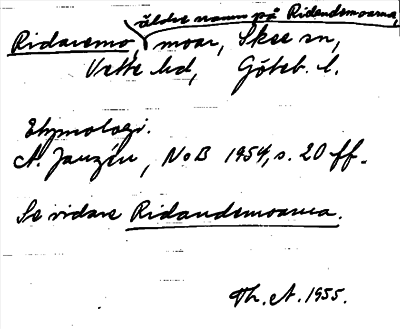 äldre namn på Ridandemoarna,
Ridaremo, moar, Skee sn,
Vette hd, Göteb. l.
Etymologi.
A. Janzén, NoB 1954, s. 20 ff.
Se vidare Ridandemoarna.
Th. A. 1955.